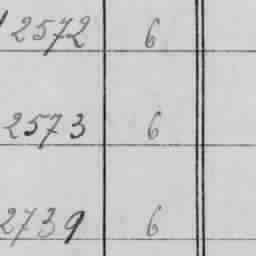 2572 6
2573 6
2739 6